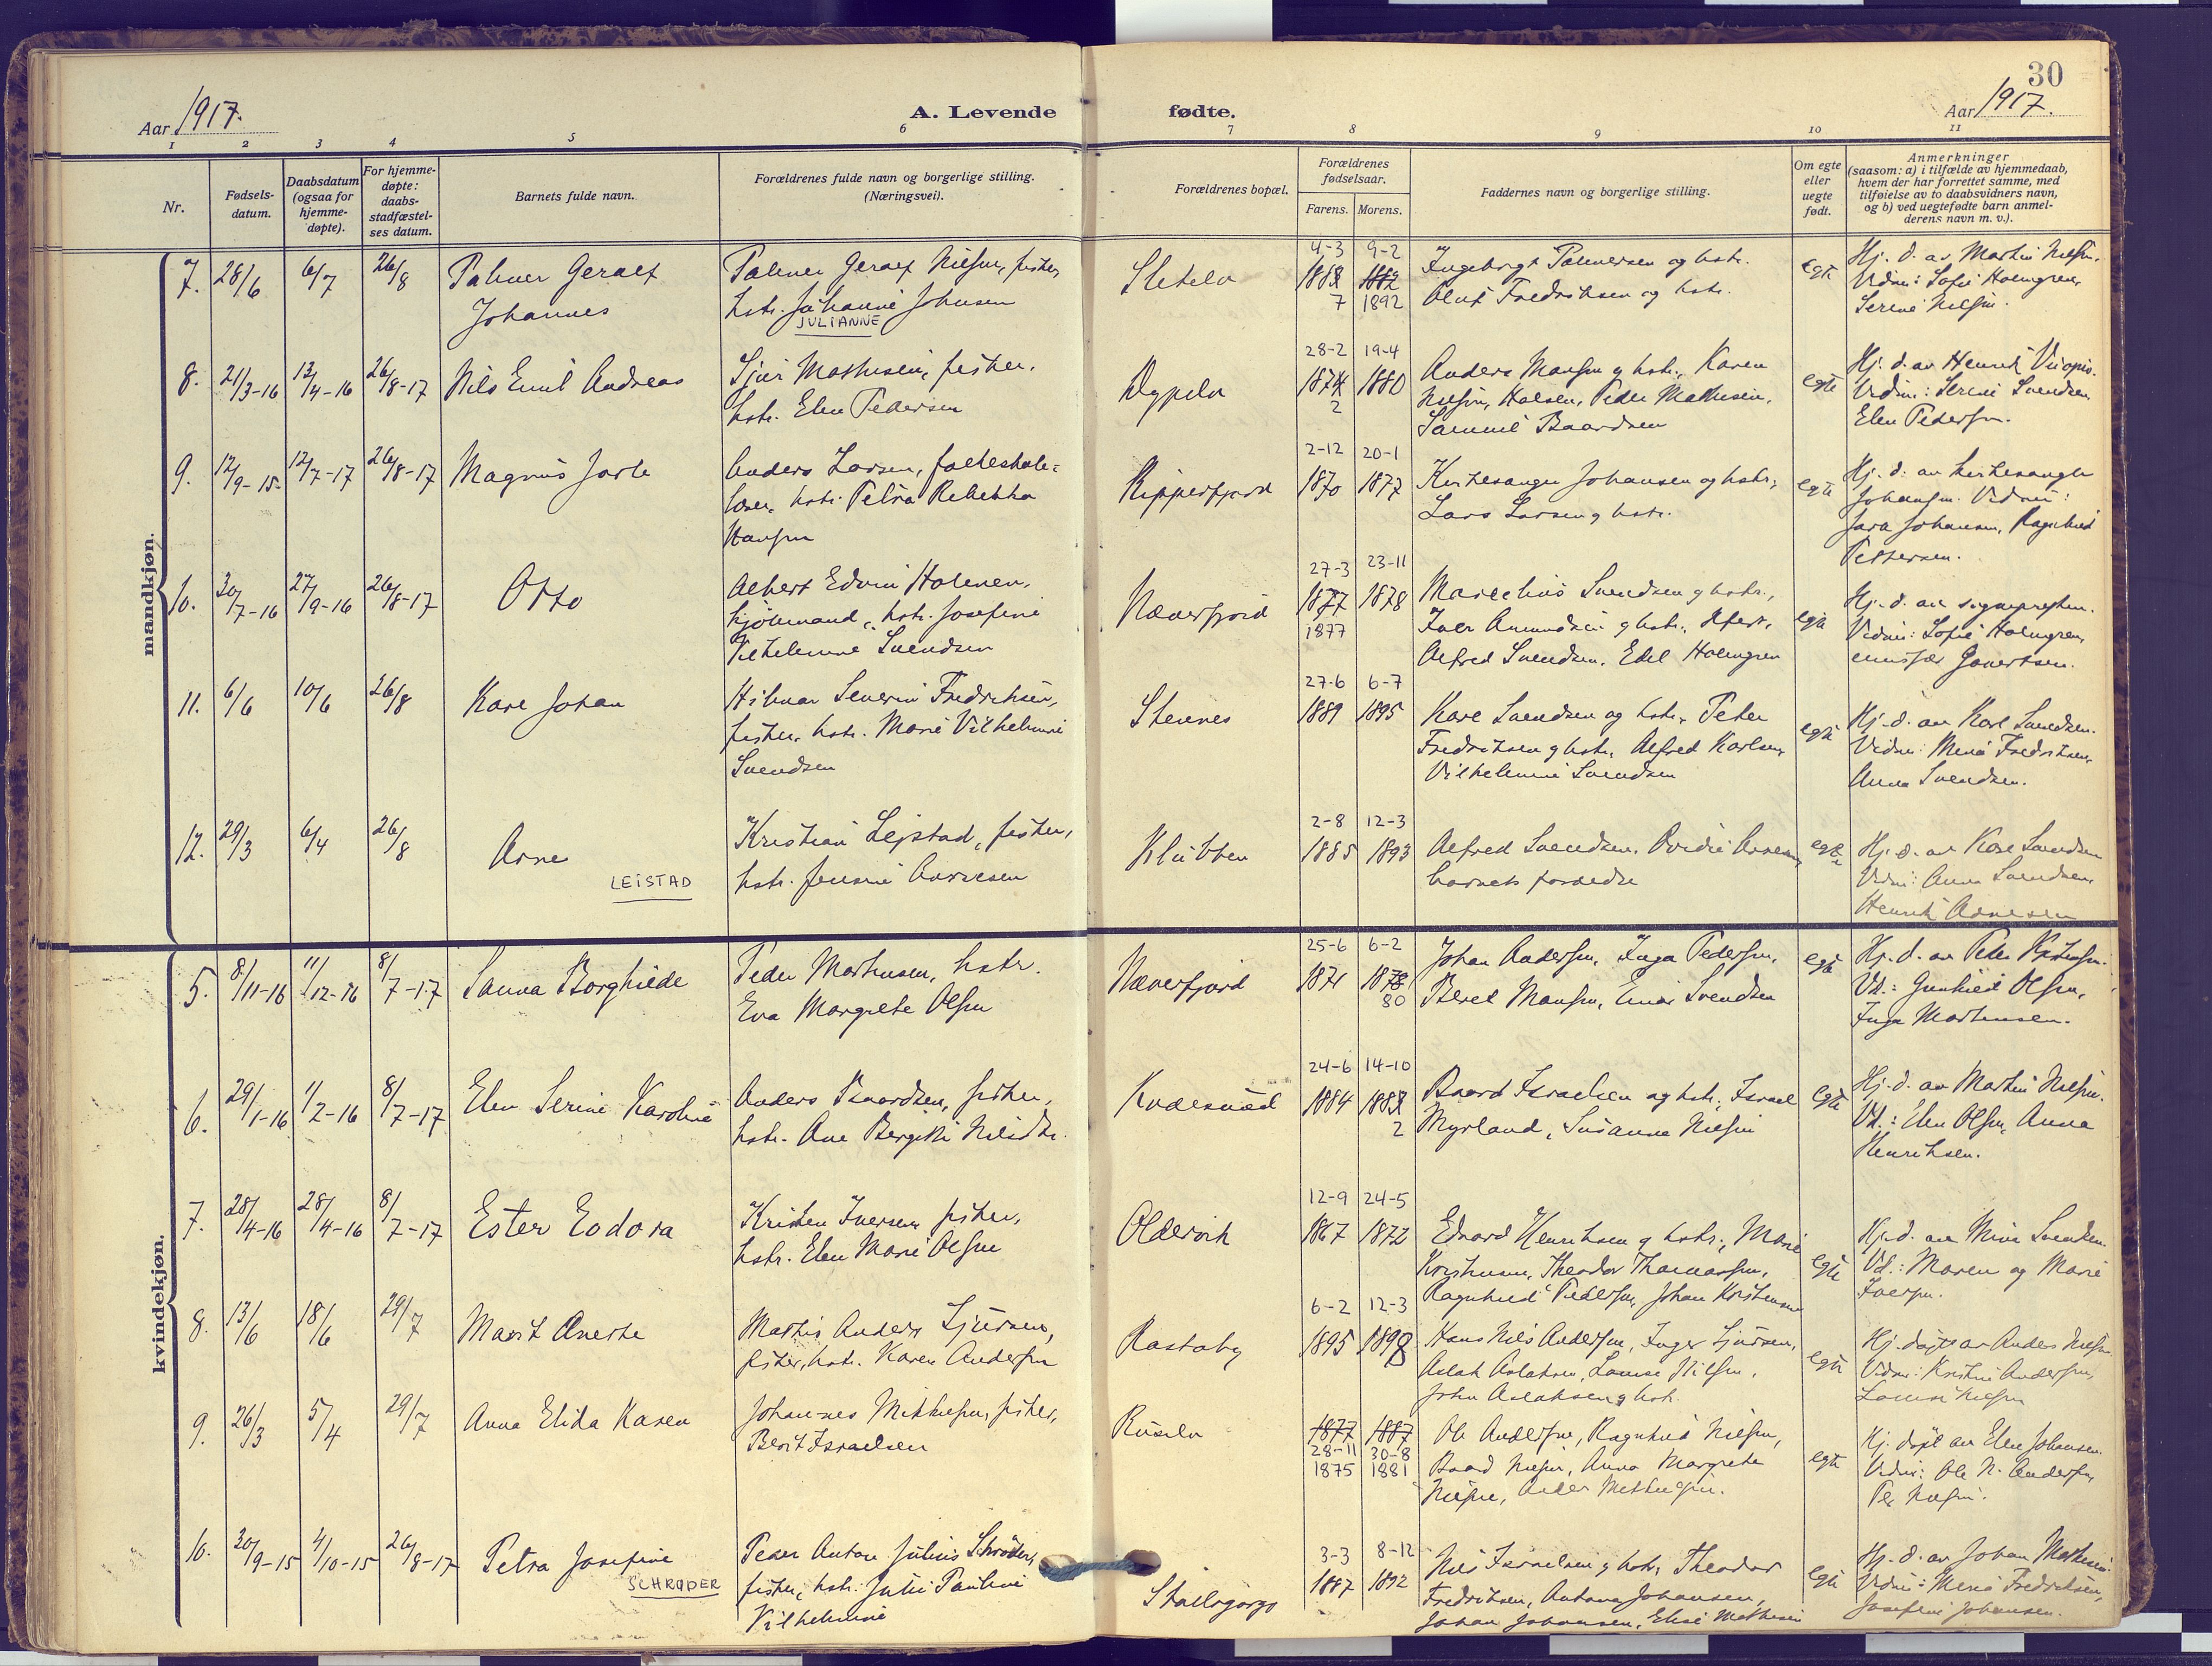 30
Aar 1917.
A. Levende fødte.
Aar 1917.
1 2 3 4 5 6 7 8 9 10 11
Nr.
Fødsels-
datum.
Daabsdatum
(ogsaa for
hjemme-
døpte).
For hjemme-
døpte:
daabs-
stadfæstel-
ses datum.
Barnets fulde navn.
Forældrenes fulde navn og borgerlige stilling.
(Næringsvei).
Forældrenes bopæl.
Forældrenes
fødselsaar.
Farens. Morens.
Faddernes navn og borgerlige stilling.
Om egte
eller
uegte
født.
Anmerkninger
(saasom: a) i tilfælde av hjemmedaab,
hvem der har forrettet samme, med
tilføielse av to daabsvidners navn,
og b) ved uegtefødte barn anmel-
derens navn m. v.).
mandkjøn.
7. 28/6 6/7 26/8
Johannes
hstr. Johansen
JULIANNE
4-3 9-2
1882
7 1892
Ingeborgt Palmersen og hstr.
Oluf Fredriksen og hstr.
egte
Hj. d. av Martin Nilsen.
Vidner: Sofie Holmgren,
Serine Nilsen.
8. 21/3-16 13/4-16 26/8-17
Nils Emil Andreas
Sjur Mathisen, fisker,
hstr. Elen Pedersen
28-2 19-4
1874 1880
2
Anders Hansen og hstr., Karen
Nilsen, Peder Mathisen,
Samuel Baardsen
egte
Hj. d. av Henrik
Vidner: Serine Svendsen,
Elen Pedersen.
9. 12/9-15 12/7-17 26/8-17
Magnus Jarle
Anders Larsen, folkeskole-
lærer, hstr. Petra Rebekka
Hansen
Repperfjord
2-12 20-1
1870 1877
Kirkesanger Johansen og hstr.,
Lars Larsen og hstr.
egte
Hj. d. av kirkesanger
Johansen. Vidner:
Sara Johansen, Ragnhild
Pettersen.
10. 30/7-16 27/9-16 26/8-17
Otto
Albert Edvin
hstr. Josefine
Vilhelmine Svendsen
Næverfjord
27-3 23-11
1877 1878
1877
Svendsen og hstr.,
Iver Amundsen og hstr.
Alfred Svendsen, Edel Holmgren
egte
Hj. d. av sognepresten.
Vidner: Sofie Holmgren,
11. 6/6 10/6 26/8
Kare Johan
Hilmar Severin Fredriksen,
fisker, hstr. Marie Vilhelmine
Svendsen
Stennes
27-6 6-7
1889 1895
Kare Svendsen og hstr., Peter
Fredriksen og hstr., Alfred Karlsen,
Vilhelmine Svendsen
egte
Hj. d. av Karl Svendsen.
Vidner: Mina Fredriksen,
Anna Svendsen.
12. 29/3 6/4 26/8
Arne
LEISTAD
Kristian Lejstad, fisker,
hstr. Jensine
Klubben
2-8 12-3
1885 1893
Alfred Svendsen,
barnets forældre
egte
Hj. d. av Karl Svendsen
Vidner: Anna Svendsen,
Henrik Arnesen
kvindekjøn.
5. 8/11-16 11/12-16 8/7-17
Sanna Borghilde
Peder Mathisen, hstr.
Eva Margrete Olsen
Næverfjord
25-6 6-2
1871 1878
80
Johan Andersen, Inga Pedersen,
Beret Hansen, Einar Svendsen
egte
Hj. d. av Peder
Vd.: Gunhild Olsen,
Inga Mathisen.
6. 29/1-16 1/2-16 8/7-17
Elen Serine Karoline
Anders Baardsen, fisker,
hstr. Ane Bergitte
24-6 14-10
1884
2
Baard Israelsen og hstr., Israel
Myrland, Susanna Nilsen
egte
Hj. d. av Martin Nilsen.
Vd.: Elen Olsen, Anna
Henriksen.
7. 28/4-16 28/4-16 8/7-17
Ester Eodora
Kristen Iversen, fisker,
hstr. Elen Marie Olsen
Oldervik
12-9 24-5
1867 1872
Edvard Henriksen og hstr., Marie
Kristensen, Theodor Thomassen,
Ragnhild Pedersen, Johan Kristensen
egte
Hj. d. av Mina Svendsen.
Vd.: Maren og Marie
Iversen.
8. 13/6 18/6 29/7
Marit Anette
Mathis Anders Sjursen,
fisker, hstr. Karen Andersen
Rastaby
6-2 12-3
1895
Hans Nils Andersen, Inger Sjursen,
Aslak Aslaksen, Lovise Nilsen,
John Aslaksen og hstr.
egte
Hj. døpt av Anders Nilsen.
Vidner: Kristine Andersen,
Lovise Nilsen
9. 26/3 5/4 29/7
Anna Elida Karen
Johannes Mikkelsen, fisker,
Berit Israelsen
1877 1887
28-11 30-8
1875 1881
Ole Andersen, Ragnhild Nilsen,
Baard Nilsen, Anna Margrete
Nilsen, Mikkelsen.
egte
Hj. døpt av Elen Johansen.
Vidner: Ole N. Andersen,
Per Nilsen.
10. 30/9-15 4/10-15 26/8-17
Petra Josefine
SCHRØDER
Peder Anton Julius Schrøder,
fisker, hstr. Julie Pauline
Vilhelmine
3-3 8-12
1887 1892
Nils Israelsen og hstr., Theodor
Fredriksen, Antona Johansen,
Johan Johansen, Elise Mathisen
egte
Hj. d. av Johan Mathisen.
Vidner: Mina Fredriksen,
Josefine Johansen.